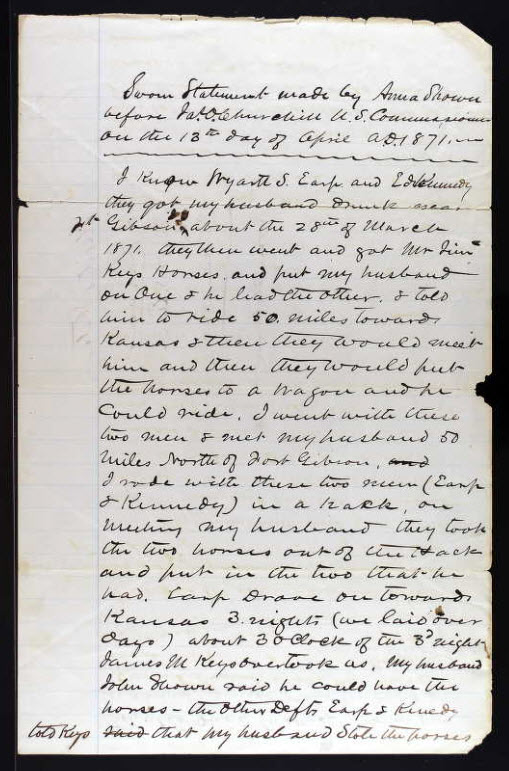 Sworn Statement made by Anna Shown
before Jas. O. Churchill U.S. Commissioner
on the 13th day of April A.D. 1871.
I know Wyatt S. Earp and Ed Kennedy
they got my husband drunk near
Ft Gibson, about the 28th of March
1871. they then went and got Mr Jim
Keys Horses. and put my husband
on One & he lead the other. & told
him to ride 50. miles towards
Kansas & then they would meet
him and then they would put
the horses to a Wagon and he
Could ride. I went with these
two men & met my husband 50
miles North of Fort Gibson, and
I rode with these two men (Earp
& Kennedy) in a hack, on
meeting my husband they took
the two horses out of the Hack
and put in the two that he
had. Earp Drove on towards
Kansas 3. nights (we laid over
days) about 3 OClock of the 3d night
James M Keys overtook us. My husband
John Shown said he could have the
horses - the Other Defts Earp & Kenedy
told Keys said that my husband Stole the horses